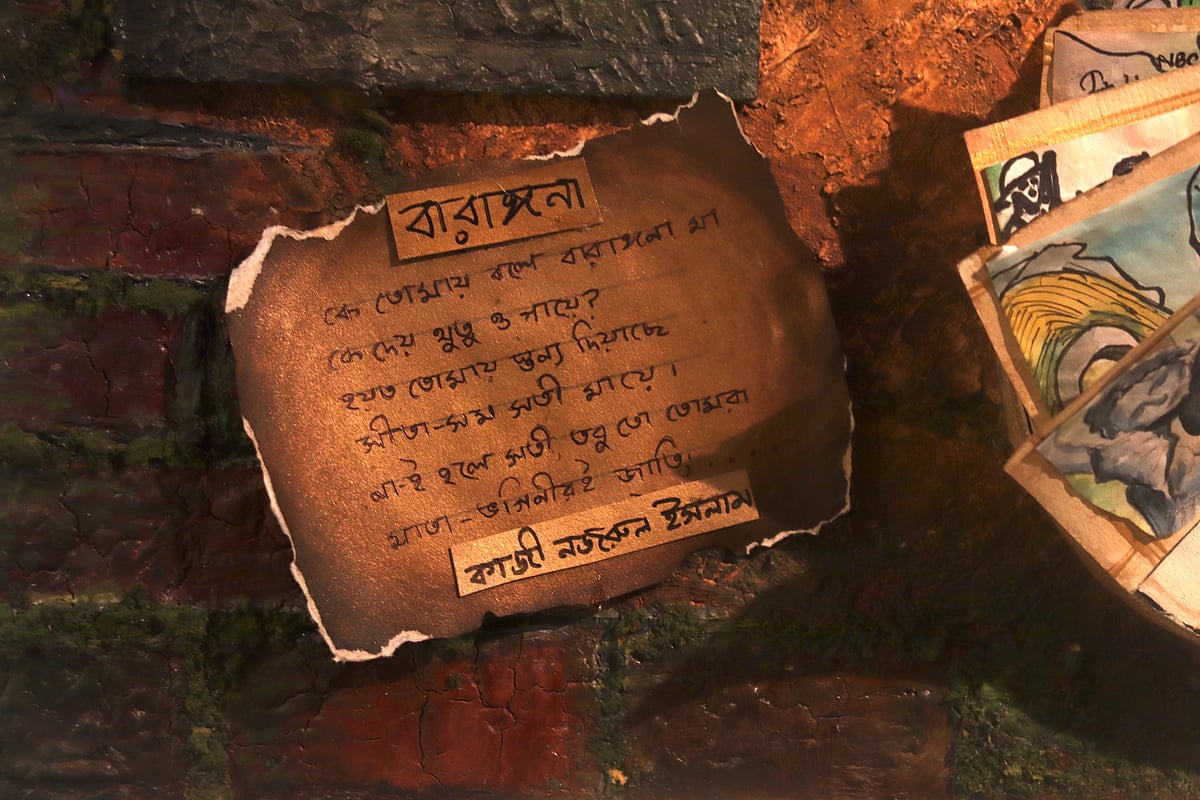 বারাঙ্গনা
কে তোমায় বলে বারাঙ্গনা মা
কে দেয় থুতু ও গায়ে?
হয়ত তোমায় স্তন্য দিয়াছে
সীতা-সম সতী মায়ে।
না-ই হলে সতী, তবু তো তোমরা
মাতা-ভগিনীরই জাতি;.....
কাজী নজরুল ইসলাম